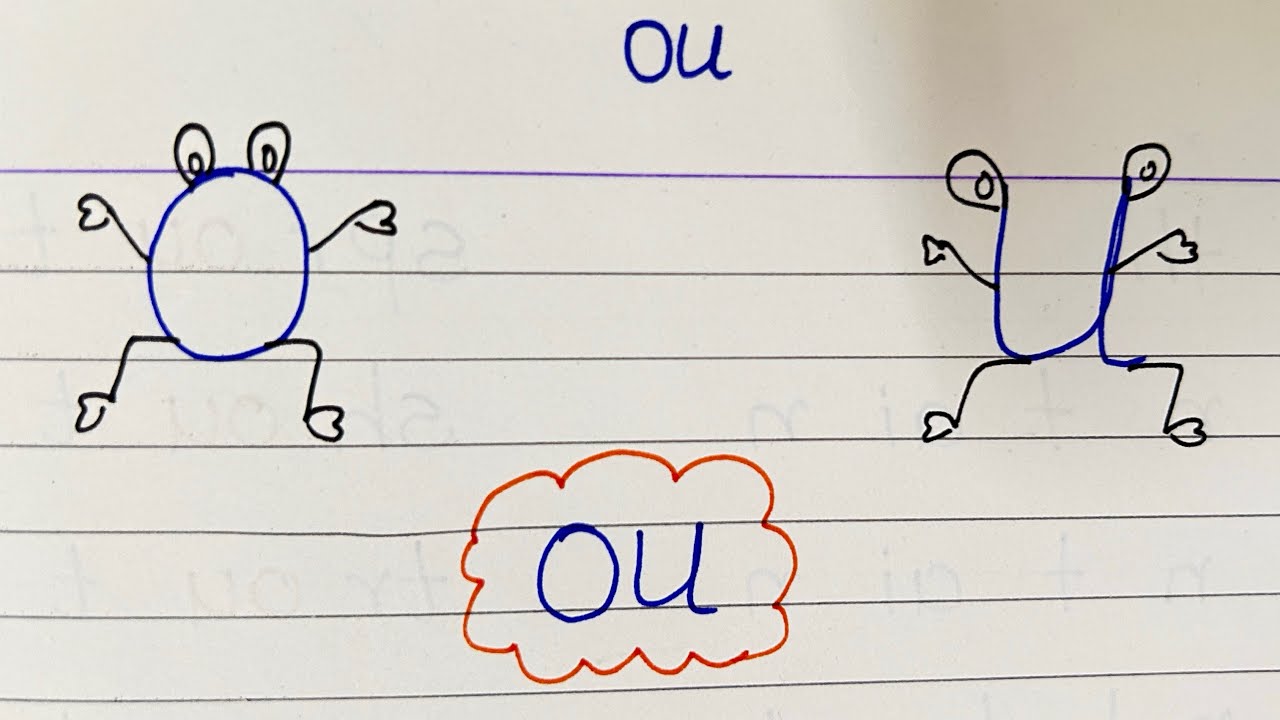 ou
o u
ou